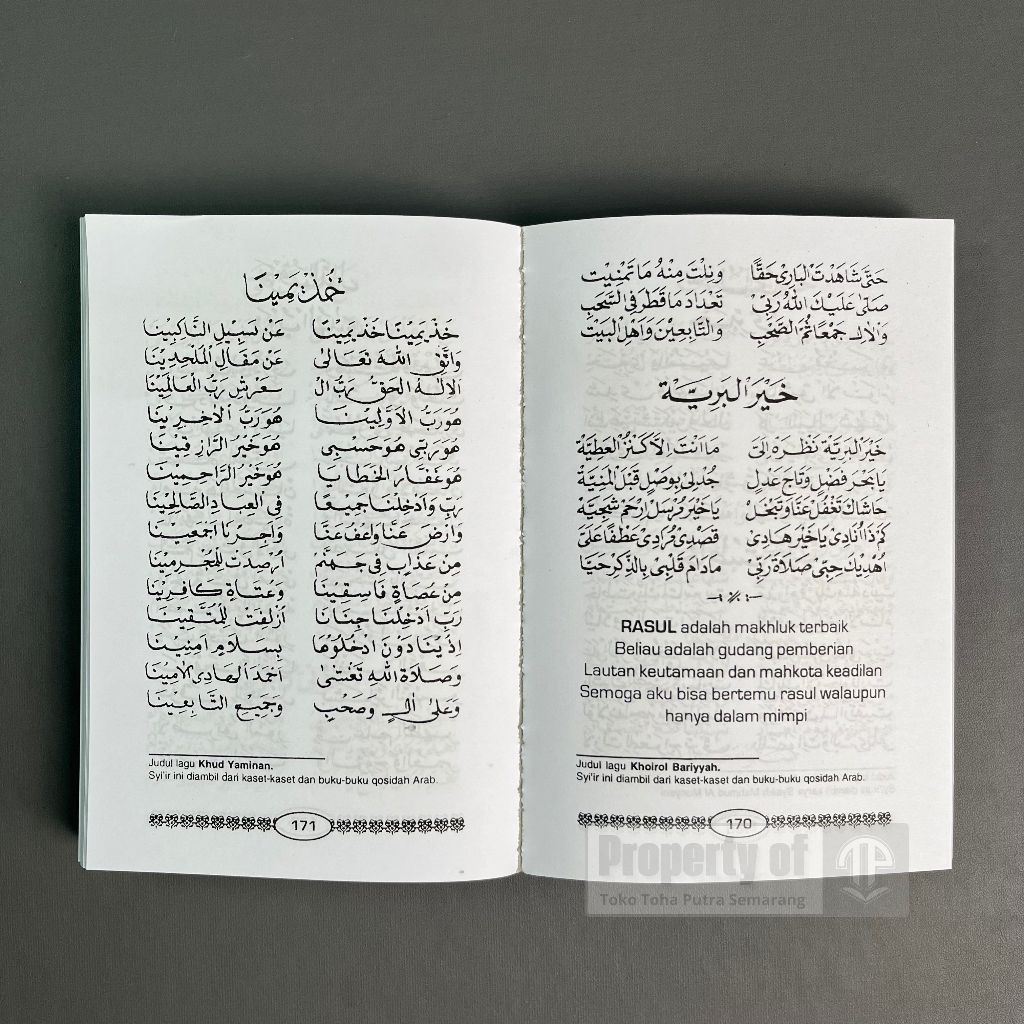 حَتَّى شَاهَدْتَ الْبَارِيْ حَقًّا وَنِلْتَ مِنْهُ مَا تَمَنَّيْتَ
صَلَّى عَلَيْكَ اللهُ رَبِّيْ تَعْدَادَ مَا قَطَرَ فِي السُّحُبِ
وَالْاٰلِ جَمْعًا ثُمَّ الصَّحْبِ وَالتَّابِعِيْنَ وَأَهْلِ الْبَيْتِ
خَيْرَ الْبَرِيَّةْ
خَيْرَ الْبَرِيَّةْ نَظْرَةْ اِلَيَّ مَا اَنْتَ اِلَّا كَنْزُ الْعَطِيَّةْ
يَا بَحْرَ فَضْلٍ وَتَاجَ عَدْلٍ جُدْ لِيْ بِوَصْلٍ قَبْلَ الْمَنِيَّةْ
حَاشَاكَ تَغْفُلْ عَنَّا وَتَبْخَلْ يَا خَيْرَ مُرْسَلْ اِرْحَمْ شَجِيَّةْ
كَمْ ذَا اُنَادِيْ يَا خَيْرَ هَادِيْ قَصْدِيْ مُرَادِيْ عَطْفًا عَلَيَّ
اُهْدِيْكَ حِبِّيْ صَلَاةَ رَبِّيْ مَادَامَ قَلْبِيْ بِالذِّكْرِ حَيًّا
RASUL adalah makhluk terbaik
Beliau adalah gudang pemberian
Lautan keutamaan dan mahkota keadilan
Semoga aku bisa bertemu rasul walaupun
hanya dalam mimpi
Judul lagu Khoirol Bariyyah.
Syi'ir ini diambil dari kaset-kaset dan buku-buku qosidah Arab.
170
خُذْ يَمِيْنَا
خُذْ يَمِيْنَا خُذْ يَمِيْنَا عَنْ سَبِيْلِ النَّاكِبِيْنَا
وَاتَّقِ اللهَ تَعَالَى عَنْ مَقَالِ الْمُلْحِدِيْنَا
الْاِلٰهُ الْحَقُّ رَبُّ الْ ـعَرْشِ رَبُّ الْعَالَمِيْنَا
هُوَ رَبُّ الْاَوَّلِيْنَا هُوَ رَبُّ الْاٰخِرِيْنَا
هُوَ رَبِّيْ هُوَ حَسْبِيْ هُوَ خَيْرُ الرَّازِقِيْنَا
هُوَ غَفَّارُ الْخَطَايَا هُوَ خَيْرُ الرَّاحِمِيْنَا
رَبِّ وَاَدْخِلْنَا جَمِيْعًا فِي الْعِبَادِ الصَّالِحِيْنَا
وَارْضَ عَنَّا وَاعْفُ عَنَّا وَاَجِرْنَا اَجْمَعِيْنَا
مِنْ عَذَابٍ فِيْ جَهَنَّمْ اُرْصِدَتْ لِلْمُجْرِمِيْنَا
مِنْ عُصَاةٍ فَاسِقِيْنَا وَعُتَاةٍ كَافِرِيْنَا
رَبِّ اَدْخِلْنَا جِنَانَا اُزْلِفَتْ لِلْمُتَّقِيْنَا
اِذْ يُنَادَوْنَ ادْخُلُوْهَا بِسَلَامٍ اٰمِنِيْنَا
وَصَلَاةُ اللهِ تَغْشٰى اَحْمَدَ الْهَادِي الْاَمِيْنَا
وَعَلَى اٰلٍ وَصَحْبٍ وَجَمِيْعِ التَّابِعِيْنَا
Judul lagu Khud Yaminan.
Syi'ir ini diambil dari kaset-kaset dan buku-buku qosidah Arab.
171
Property of
Toko Toha Putra Semarang